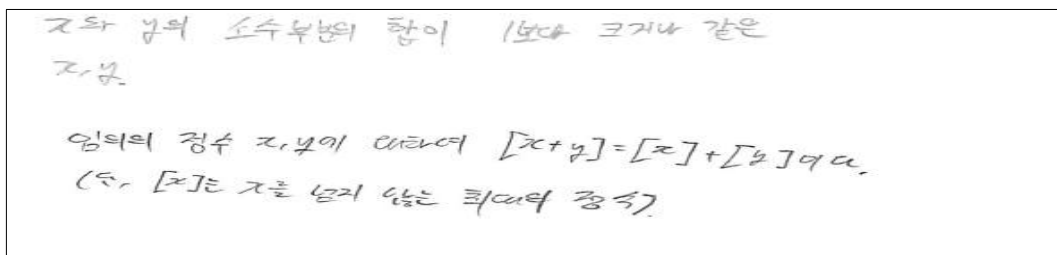 x와 y의 소수부분의 합이 1보다 크거나 같은
x, y.
임의의 정수 x, y에 대하여 [x+y]=[x]+[y]이다.
(단, [x]는 x를 넘지 않는 최대의 정수).